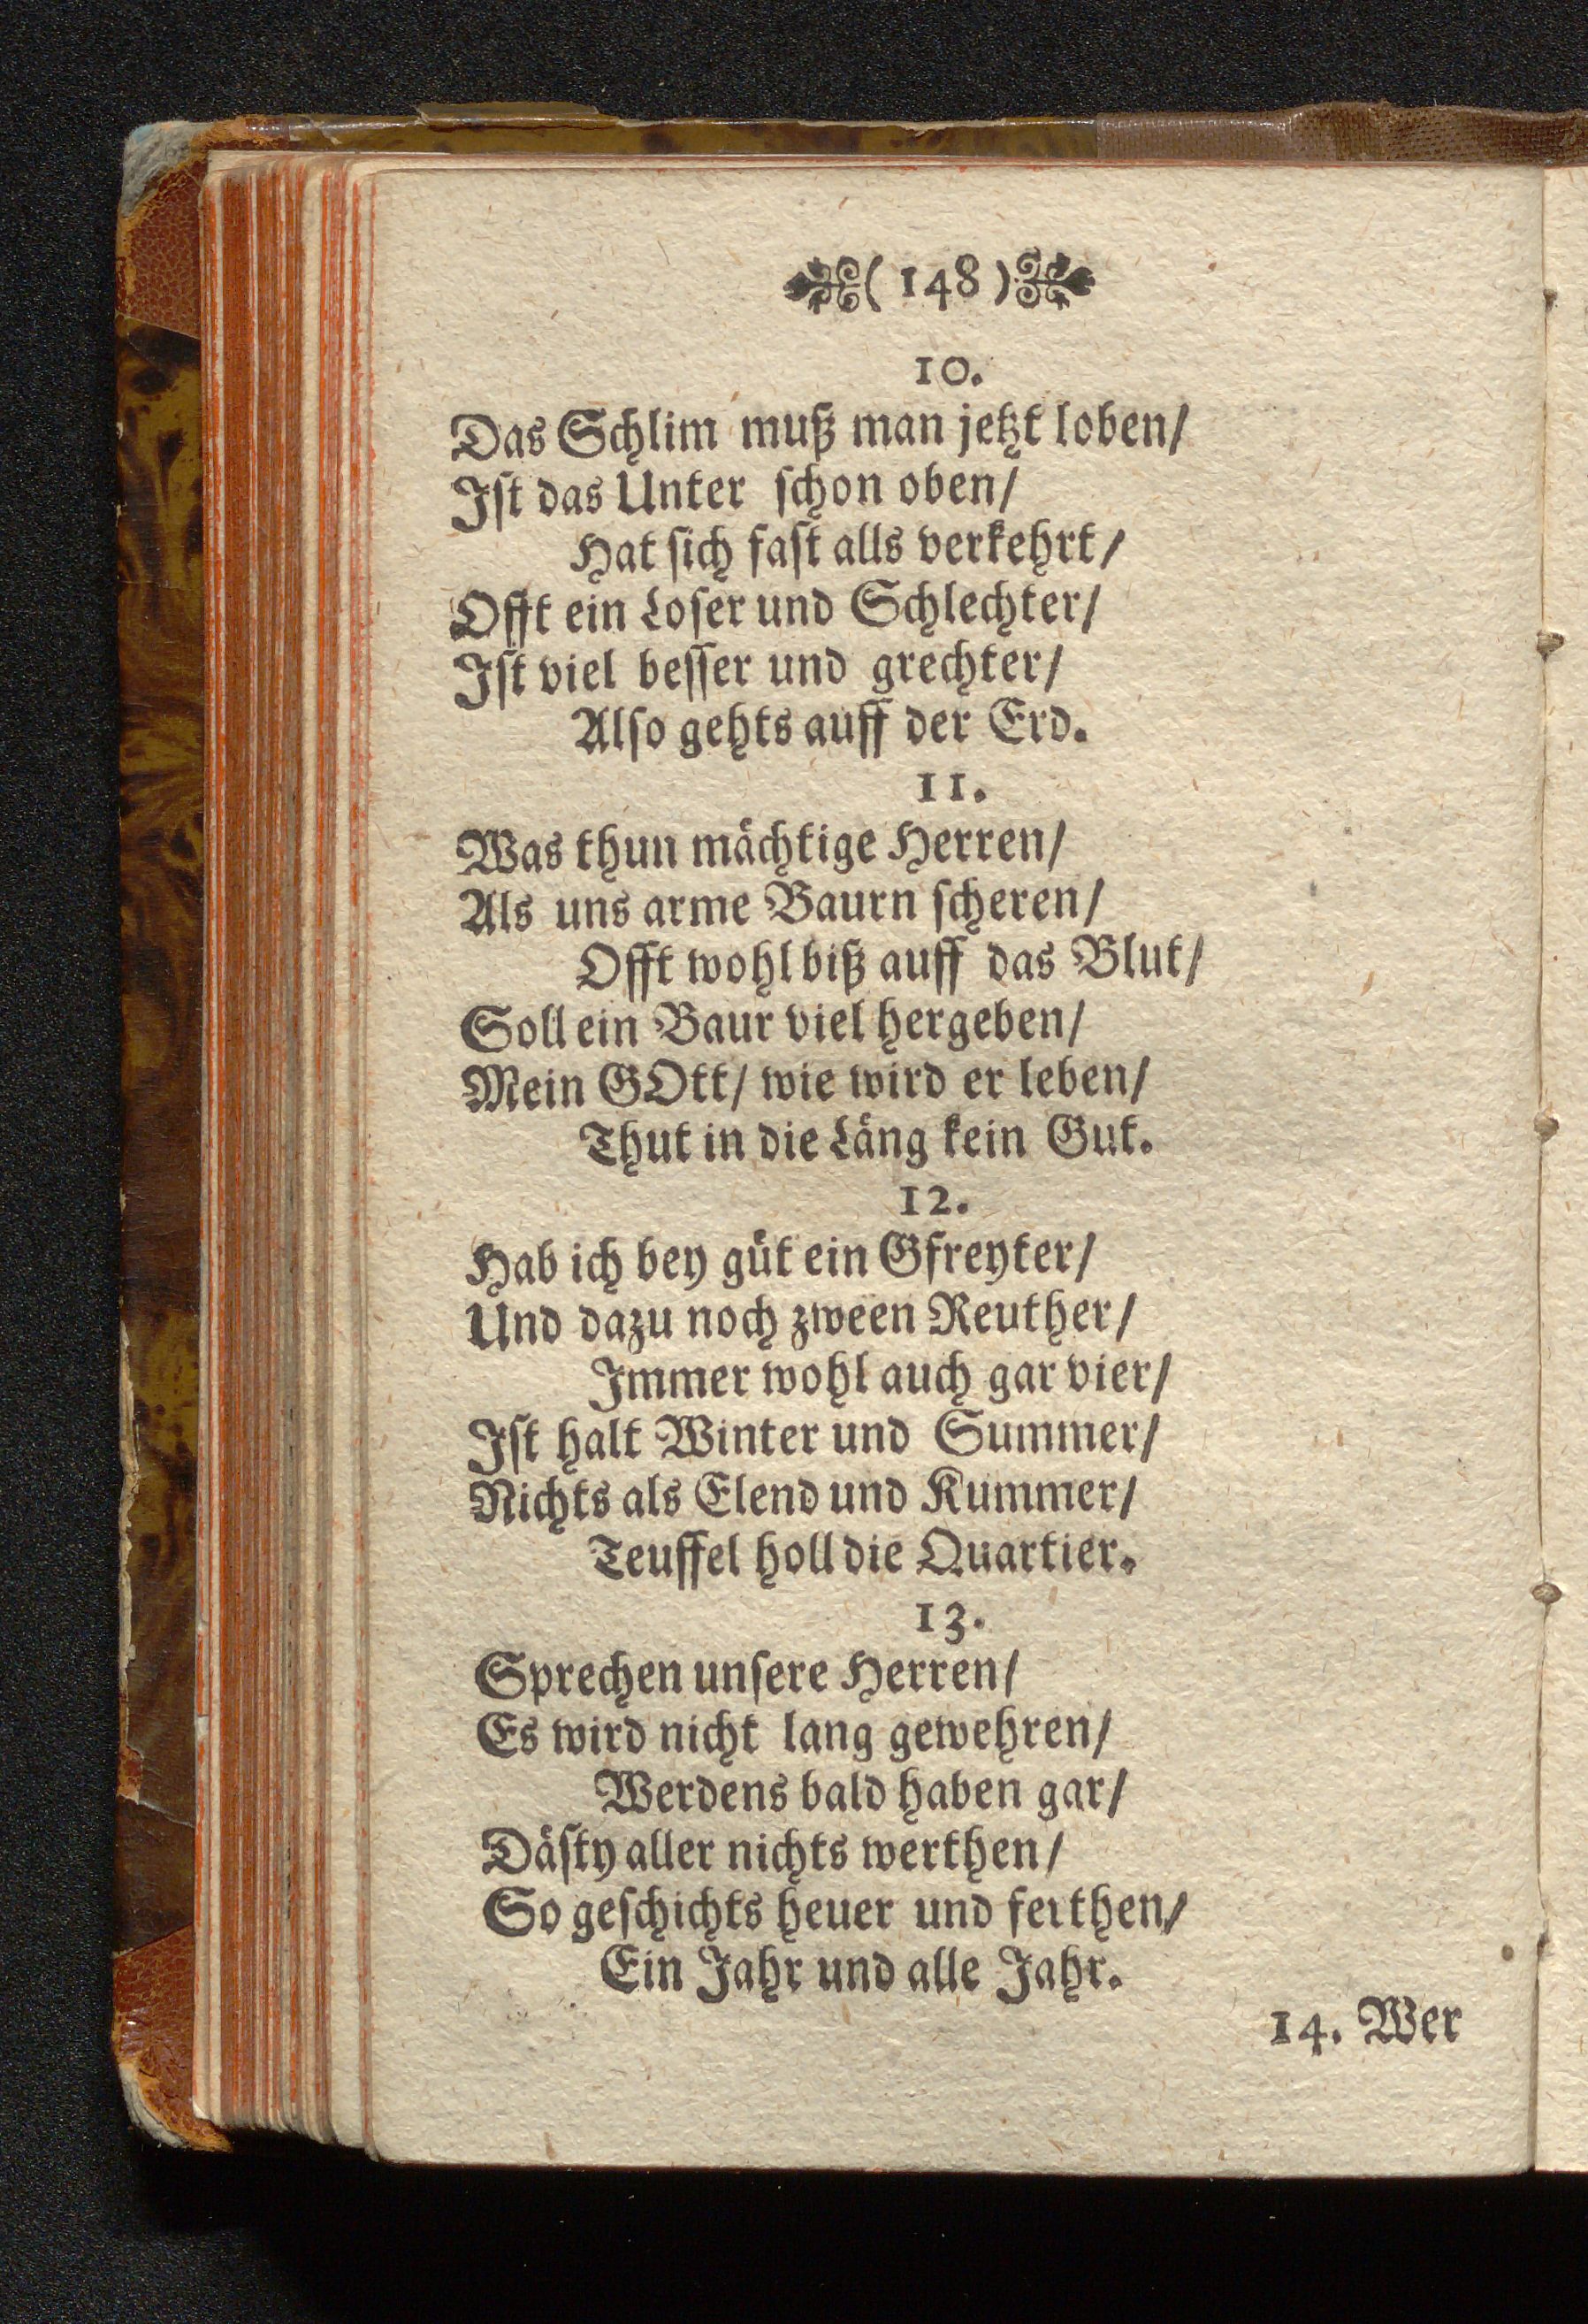 ( 148 )
10.
Das Schlim muß man jetzt loben/
Ist das Unter schon oben/
Hat sich fast alls verkehrt/
Offt ein Loser und Schlechter/
Ist viel besser und grechter/
Also gehts auff der Erd.
11.
Was thun mächtige Herren/
Als uns arme Baurn scheren/
Offt wohl biß auff das Blut/
Soll ein Baur viel hergeben/
Mein GOtt/ wie wird er leben/
Thut in die Läng kein Gut.
12.
Hab ich bey güt ein Gfreyter/
Und dazu noch zween Reuther/
Immer wohl auch gar vier/
Ist halt Winter und Summer/
Nichts als Elend und Kummer/
Teuffel holl die Quartier.
13.
Sprechen unsere Herren/
Es wird nicht lang gewehren/
Werdens bald haben gar/
Dästy aller nichts werthen/
So geschichts heuer und ferthen/
Ein Jahr und alle Jahr.
14. Wer